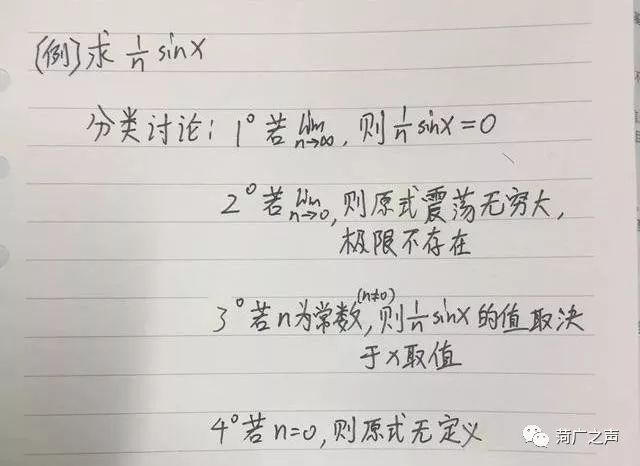 [例]求 1/n sinx
分类讨论: 1° 若 lim n→∞, 则 1/n sinx=0
2° 若 lim n→0, 则原式震荡无穷大,
极限不存在
3° 若n为常数(n≠0), 则 1/n sinx 的值取决
于x取值
4° 若n=0, 则原式无定义
菏广之声